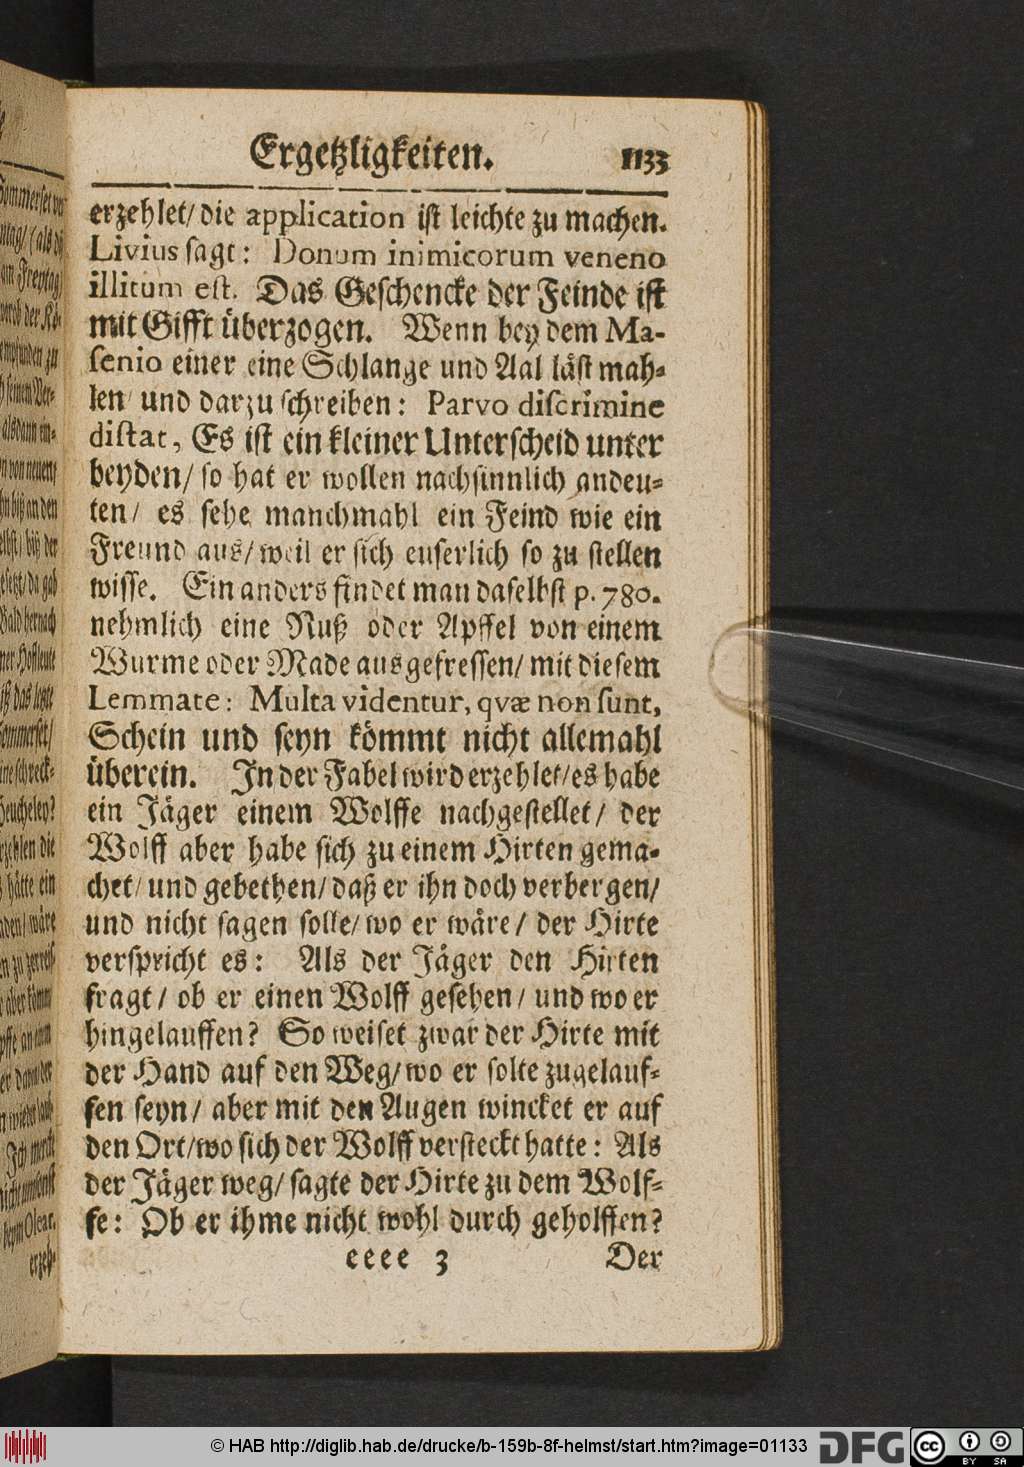 Ergetzligkeiten. 1133
erzehlet/ die application ist leichte zu machen.
Livius sagt: Donum inimicorum veneno
illitum est. Das Geschencke der Feinde ist
mit Gifft überzogen. Wenn bey dem Ma-
senio einer eine Schlange und Aal läst mah-
len/ und darzu schreiben: Parvo discrimine
distat, Es ist ein kleiner Unterscheid unter
beyden/ so hat er wollen nachsinnlich andeu-
ten/ es sehe manchmahl ein Feind wie ein
Freund aus/ weil er sich euserlich so zu stellen
wisse. Ein anders findet man daselbst p. 780.
nehmlich eine Nuß oder Apffel von einem
Wurme oder Made ausgefressen/ mit diesem
Lemmate: Multa videntur, qvæ non sunt,
Schein und seyn kömmt nicht allemahl
überein. In der Fabel wird erzehlet/ es habe
ein Jäger einem Wolffe nachgestellet/ der
Wolff aber habe sich zu einem Hirten gema-
chet/ und gebethen/ daß er ihn doch verbergen/
und nicht sagen solle/ wo er wäre/ der Hirte
verspricht es: Als der Jäger den Hirten
fragt/ ob er einen Wolff gesehen/ und wo er
hingelauffen? So weiset zwar der Hirte mit
der Hand auf den Weg/ wo er solte zugelauf-
fen seyn/ aber mit den Augen wincket er auf
den Ort/ wo sich der Wolff versteckt hatte: Als
der Jäger weg/ sagte der Hirte zu dem Wolf-
fe: Ob er ihme nicht wohl durch geholffen?
eeee 3 Der
© HAB http://diglib.hab.de/drucke/b-159b-8f-helmst/start.htm?image=01133
DFG cc BY SA